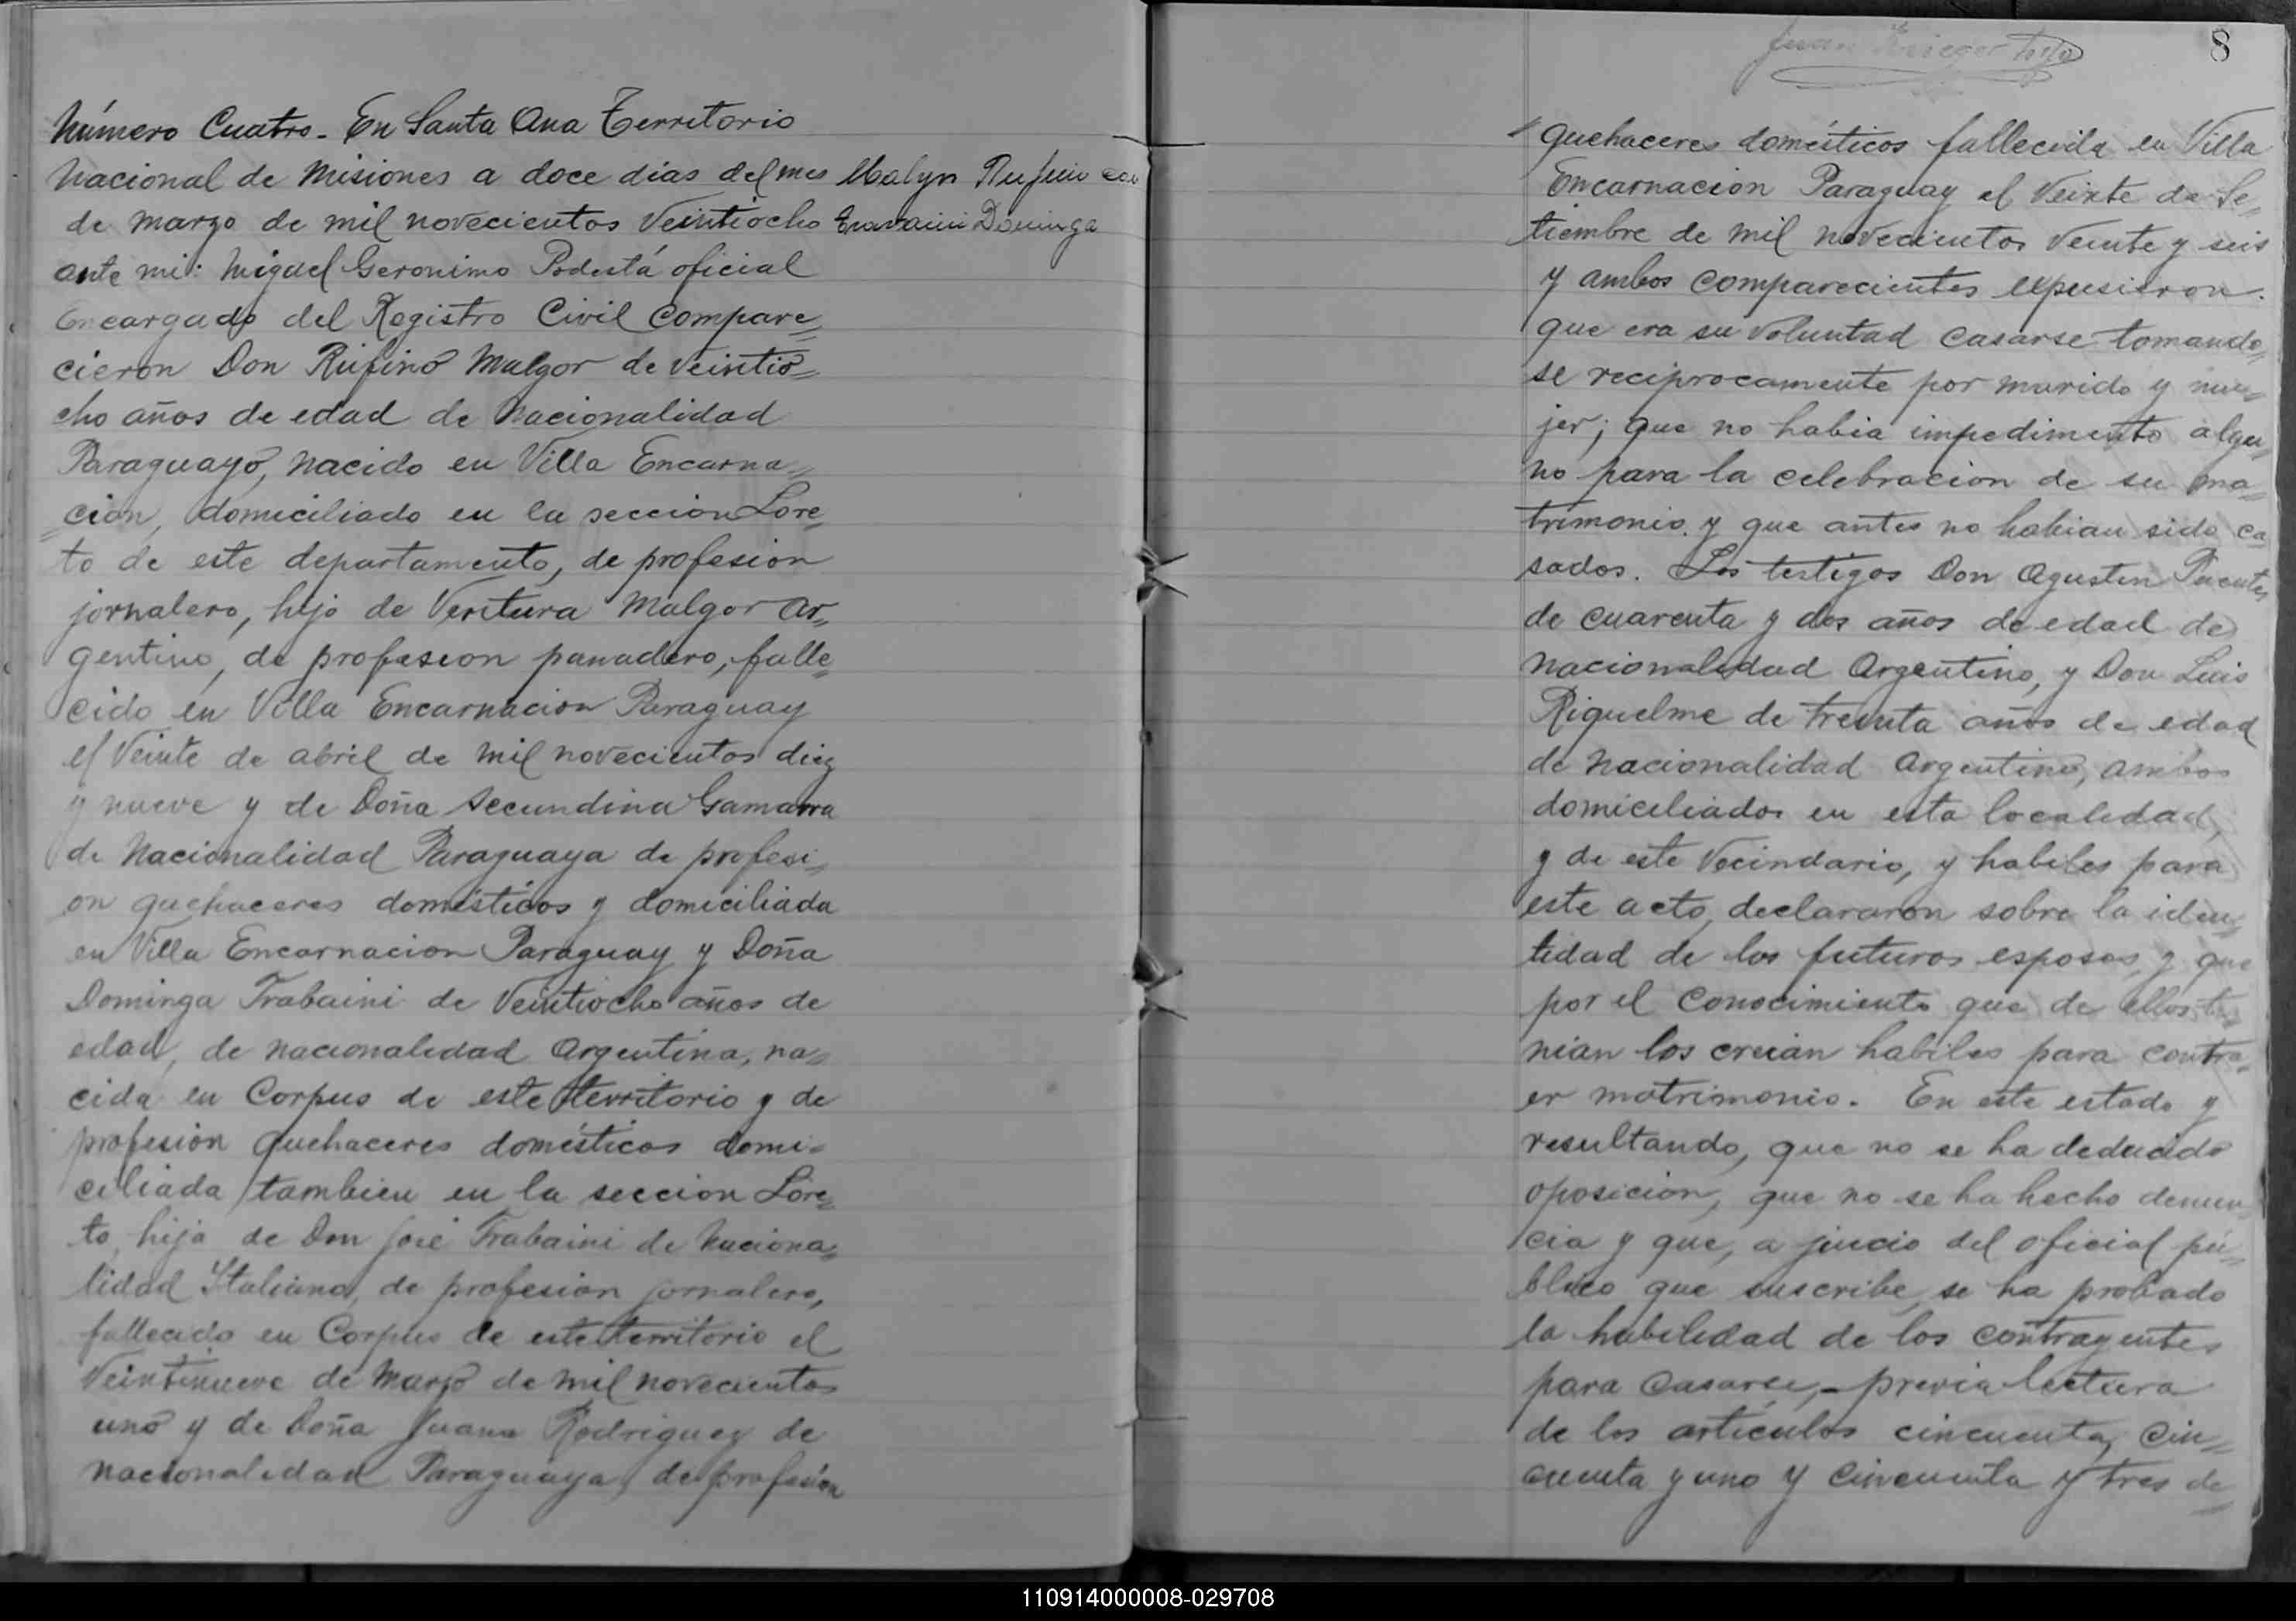 Número Cuatro. En Santa Ana Territorio
Nacional de Misiones a doce dias del mes
de marzo de mil novecientos Veintiocho
ante mi: Miguel Geronimo Podestá oficial
Encargado del Registro Civil compare=
cieron Don Rufino Malgor de veintio=
cho años de edad de nacionalidad
Paraguayo, nacido en Villa Encarna=
=cion, domiciliado en la seccion Lore=
to de este departamento, de profesion
jornalero, hijo de Ventura Malgor Ar=
gentino, de profesion panadero, falle=
cido en Villa Encarnacion Paraguay
el Veinte de abril de mil novecientos diez
y nueve y de Doña Secundina Gamarra
de Nacionalidad Paraguaya de profesi=
on quehaceres domésticos y domiciliada
en Villa Encarnacion Paraguay y Doña
Dominga Trabaini de Veintiocho años de
edad, de nacionalidad Argentina, na=
cida en Corpus de este territorio y de
profesion quehaceres domésticos domi=
ciliada tambien en la seccion Lore=
to, hija de Don José Trabaini de Naciona=
lidad Italiano, de profesion jornalero,
fallecido en Corpus de este territorio el
Veintinueve de Marzo de mil novecientos
uno y de Doña Juana Rodriguez de
nacionalidad Paraguaya, de profesión
Rufin con
Dominga
Juan
8
quehaceres domésticos fallecida en Villa
Encarnacion Paraguay el Veinte de Se=
tiembre de mil novecientos veinte y seis
y ambos comparecientes expusieron.
que era su voluntad casarse tomando=
se reciprocamente por marido y mu=
jer; que no habia impedimento algu=
no para la celebracion de su ma=
trimonio. y que antes no habian sido ca=
sados. Los testigos Don Agustin
de cuarenta y dos años de edad de
nacionalidad Argentino, y Don Luis
Riquelme de treinta años de edad
de Nacionalidad Argentino, ambos
domiciliados en esta localidad,
y de este Vecindario, y habiles para
este acto, declararon sobre la iden=
tidad de los futuros esposos, y que
por el conocimiento que de ellos te=
nian los creian habiles para contra=
er matrimonio. En este estado y
resultando, que no se ha deducido
oposicion, que no se ha hecho denun=
cia y que, a juicio del oficial pú=
blico que suscribe, se ha probado
la habilidad de los contrayentes
para casarse, - previa lectura
de los artículos cincuenta, cin=
cuenta y uno y cincuenta y tres de
110914000008-029708